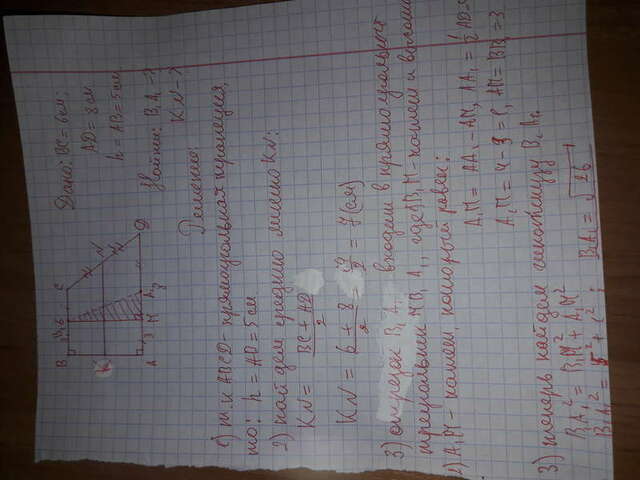 B B₁ 6 C
K N
A 3 M A₁ D
8
Дано: BC = 6 см;
AD = 8 см
h = AB = 5 см
Найти: B₁A₁ - ?
KN - ?
Решение:
1) т.к ABCD - прямоугольная трапеция,
то: h = AD = 5 см
2) найдем среднюю линию KN:
KN = BC + AD / 2
KN = 6 + 8 / 2 = 14 / 2 = 7 (см)
3) отрезок B₁A₁ входит в прямоугольный
треугольник MB₁A₁, где B₁M - катет и высота
A₁M - катет, который равен:
A₁M = AA₁ - AM, AA₁ = 1/2 AD =
A₁M = 4 - 3 = 1, AM = BB₁ = 3
3) теперь найдем гипотенузу B₁A₁.
B₁A₁² = B₁M² + A₁M²
B₁A₁² = 5² + 1² ; B₁A₁ = √26